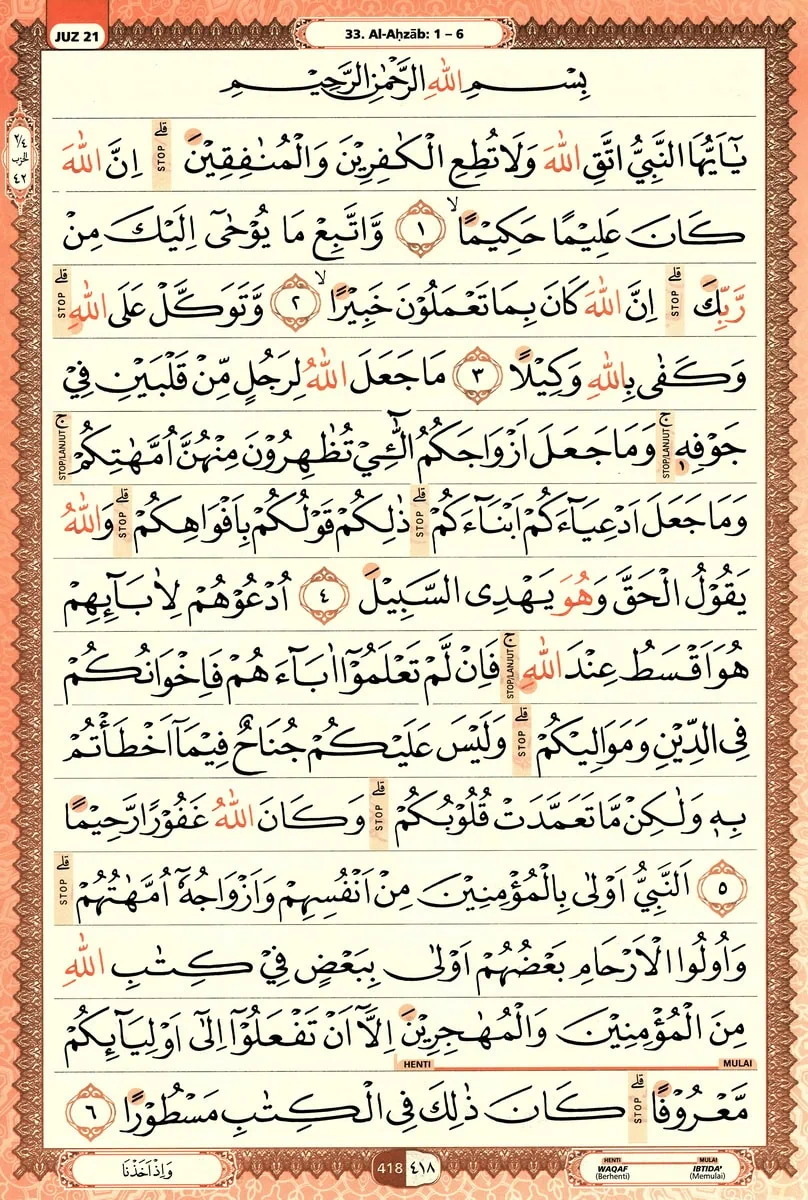 JUZ 21
33. Al-Aḥzāb: 1 – 6
٢/٤
الحزب
٤٢
بِسْمِ اللّٰهِ الرَّحْمٰنِ الرَّحِيْمِ
يٰٓاَيُّهَا النَّبِيُّ اتَّقِ اللّٰهَ وَلَا تُطِعِ الْكٰفِرِيْنَ وَالْمُنٰفِقِيْنَ ۗ STOP اِنَّ اللّٰهَ
كَانَ عَلِيْمًا حَكِيْمًاۙ ١ وَّاتَّبِعْ مَا يُوْحٰىٓ اِلَيْكَ مِنْ
رَّبِّكَ ۗ STOP اِنَّ اللّٰهَ كَانَ بِمَا تَعْمَلُوْنَ خَبِيْرًاۙ ٢ وَّتَوَكَّلْ عَلَى اللّٰهِ ۗ STOP
وَكَفٰى بِاللّٰهِ وَكِيْلًا ٣ مَا جَعَلَ اللّٰهُ لِرَجُلٍ مِّنْ قَلْبَيْنِ فِيْ
جَوْفِهٖ ۚ STOP/LANJUT وَمَا جَعَلَ اَزْوَاجَكُمُ الّٰـِٕۤيْ تُظٰهِرُوْنَ مِنْهُنَّ اُمَّهٰتِكُمْ ۚ STOP/LANJUT
وَمَا جَعَلَ اَدْعِيَاۤءَكُمْ اَبْنَاۤءَكُمْ ۗ STOP ذٰلِكُمْ قَوْلُكُمْ بِاَفْوَاهِكُمْ ۗ STOP وَاللّٰهُ
يَقُوْلُ الْحَقَّ وَهُوَ يَهْدِى السَّبِيْلَ ٤ اُدْعُوْهُمْ لِاٰبَاۤىِٕهِمْ
هُوَ اَقْسَطُ عِنْدَ اللّٰهِ ۚ STOP/LANJUT فَاِنْ لَّمْ تَعْلَمُوْٓا اٰبَاۤءَهُمْ فَاِخْوَانُكُمْ
فِى الدِّيْنِ وَمَوَالِيْكُمْ ۗ STOP وَلَيْسَ عَلَيْكُمْ جُنَاحٌ فِيْمَآ اَخْطَأْتُمْ
بِهٖ وَلٰكِنْ مَّا تَعَمَّدَتْ قُلُوْبُكُمْ ۗ STOP وَكَانَ اللّٰهُ غَفُوْرًا رَّحِيْمًا
٥ اَلنَّبِيُّ اَوْلٰى بِالْمُؤْمِنِيْنَ مِنْ اَنْفُسِهِمْ وَاَزْوَاجُهٗٓ اُمَّهٰتُهُمْ ۗ STOP
وَاُولُوا الْاَرْحَامِ بَعْضُهُمْ اَوْلٰى بِبَعْضٍ فِيْ كِتٰبِ اللّٰهِ
مِنَ الْمُؤْمِنِيْنَ وَالْمُهٰجِرِيْنَ اِلَّآ اَنْ تَفْعَلُوْٓا اِلٰٓى اَوْلِيَاۤىِٕكُمْ
HENTI MULAI
مَّعْرُوْفًا ۗ STOP كَانَ ذٰلِكَ فِى الْكِتٰبِ مَسْطُوْرًا ٦
وَاِذْ اَخَذْنَا
418 ٤١٨
HENTI MULAI
WAQAF IBTIDA'
(Berhenti) (Memulai)